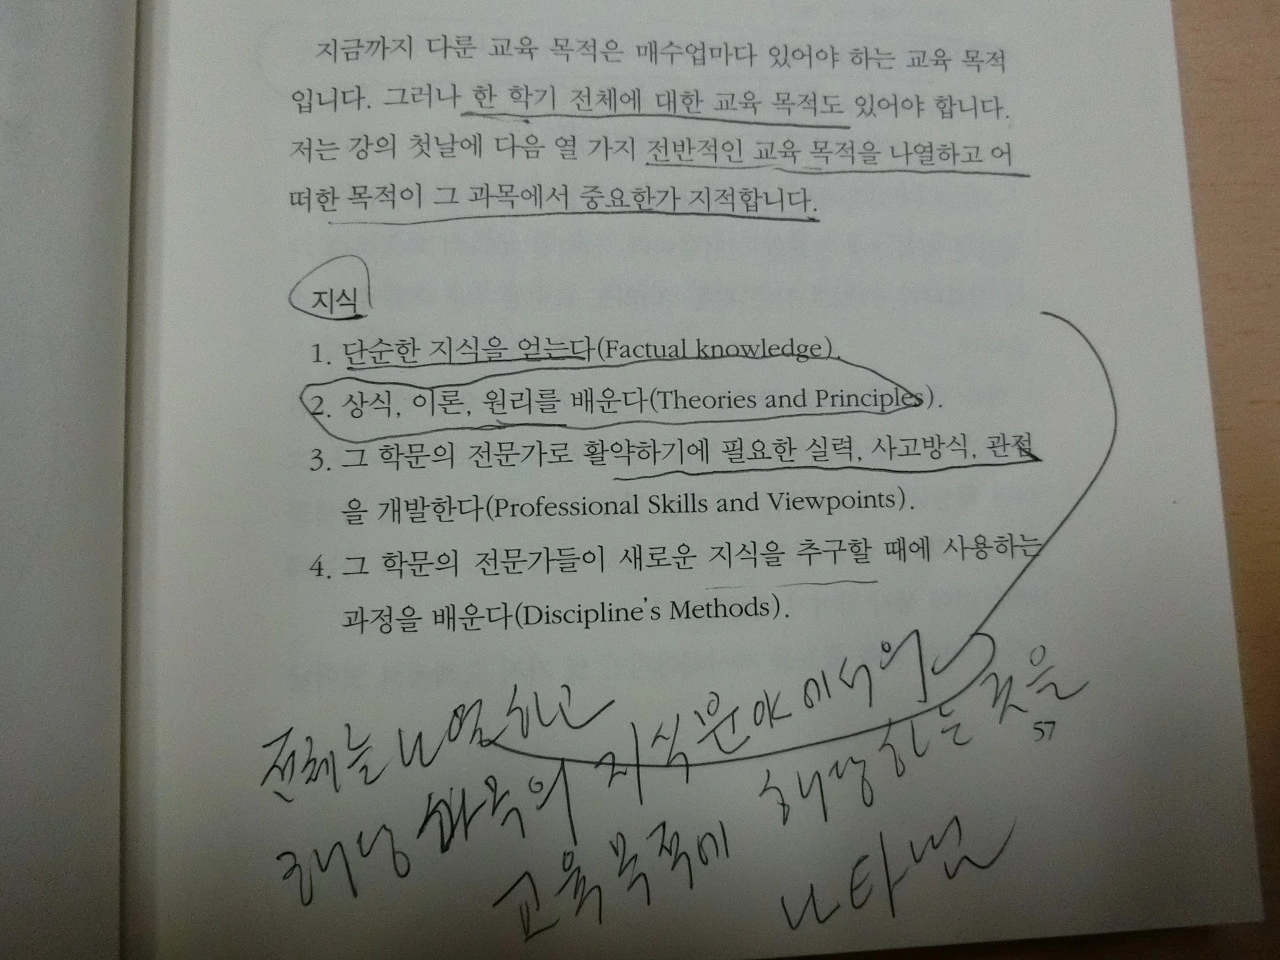 지금까지 다룬 교육 목적은 매수업마다 있어야 하는 교육 목적
입니다. 그러나 한 학기 전체에 대한 교육 목적도 있어야 합니다.
저는 강의 첫날에 다음 열 가지 전반적인 교육 목적을 나열하고 어
떠한 목적이 그 과목에서 중요한가 지적합니다.
지식
1. 단순한 지식을 얻는다(Factual knowledge).
2. 상식, 이론, 원리를 배운다(Theories and Principles).
3. 그 학문의 전문가로 활약하기에 필요한 실력, 사고방식, 관점
을 개발한다(Professional Skills and Viewpoints).
4. 그 학문의 전문가들이 새로운 지식을 추구할 때에 사용하는
과정을 배운다(Discipline's Methods).
전체를 나열하고
해당 과목의 지식분야에서의
교육목적에 해당하는 것을
나타냄
57